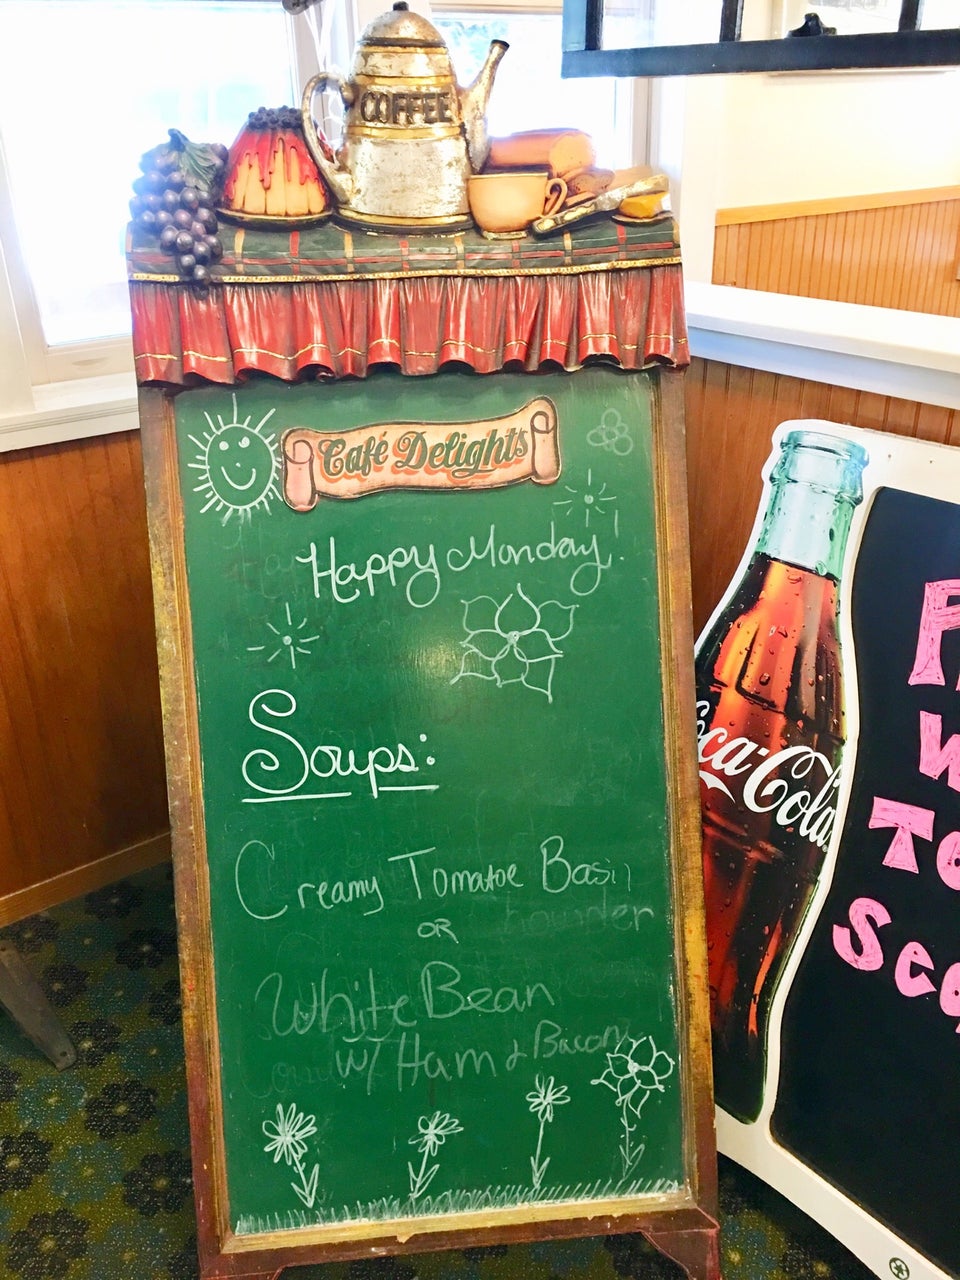 COFFEE
Café Delights
Happy Monday!
Soups:
Creamy Tomatoe Basin
OR
howder
White Bean
w/ Ham & Bacon
Coca-Cola
W
To